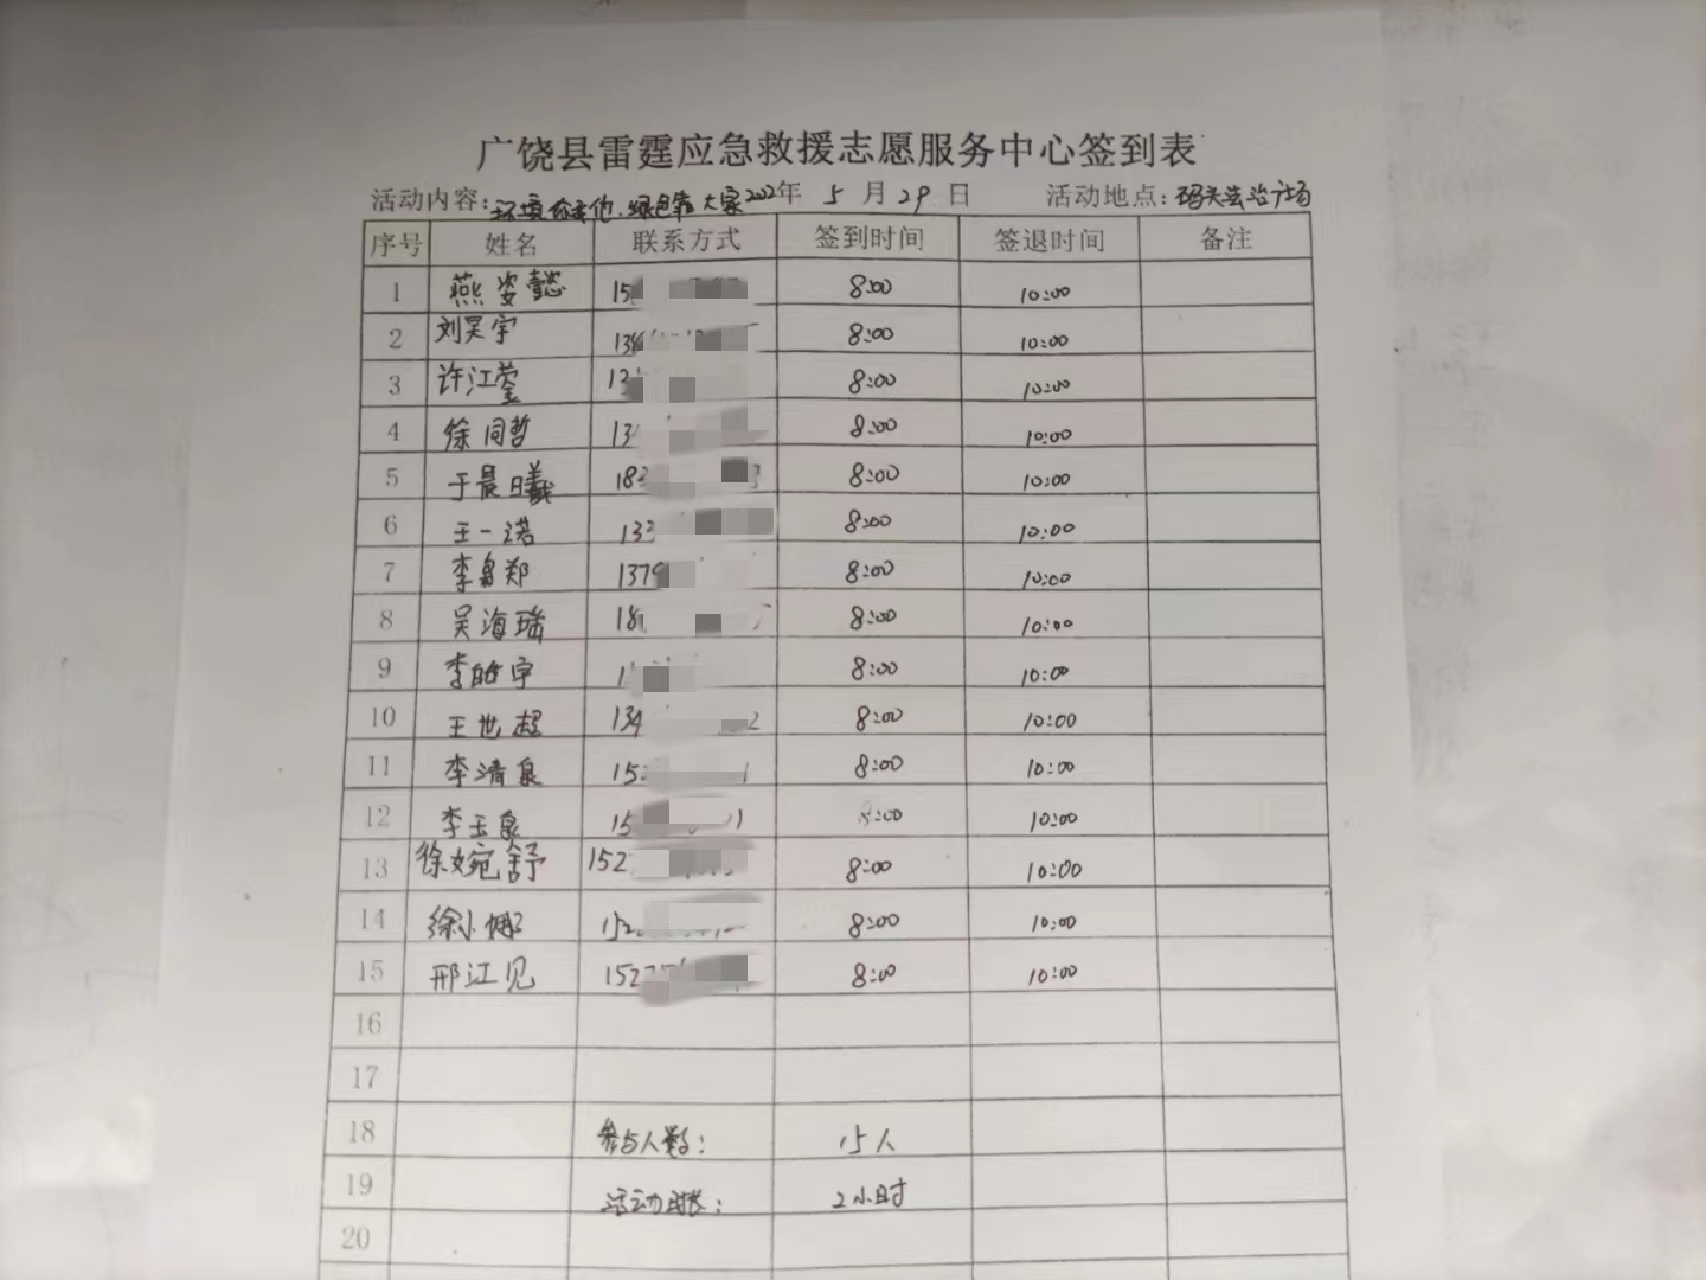 广饶县雷霆应急救援志愿服务中心签到表
活动内容: 环境你我他.绿色靠大家 2022年 5 月 29 日 活动地点: 码头法治广场
序号 姓名 联系方式 签到时间 签退时间 备注
1 燕姿懿 15 8:00 10:00
2 刘昊宇 138 8:00 10:00
3 许江蓥 8:00 10:00
4 徐同哲 13 8:00 10:00
5 于晨曦 183 8:00 10:00
6 王一诺 133 8:00 10:00
7 李郑 1379 8:00 10:00
8 吴海瑞 18 8:00 10:00
9 李皓宇 1 8:00 10:00
10 王世超 134 2 8:00 10:00
11 李清泉 15 1 8:00 10:00
12 李玉泉 15 1 8:00 10:00
13 徐婉舒 152 8:00 10:00
14 徐小 152 8:00 10:00
15 邢江见 1527 8:00 10:00
16
17
18 参与人数: 15人
19 活动时长: 2小时
20